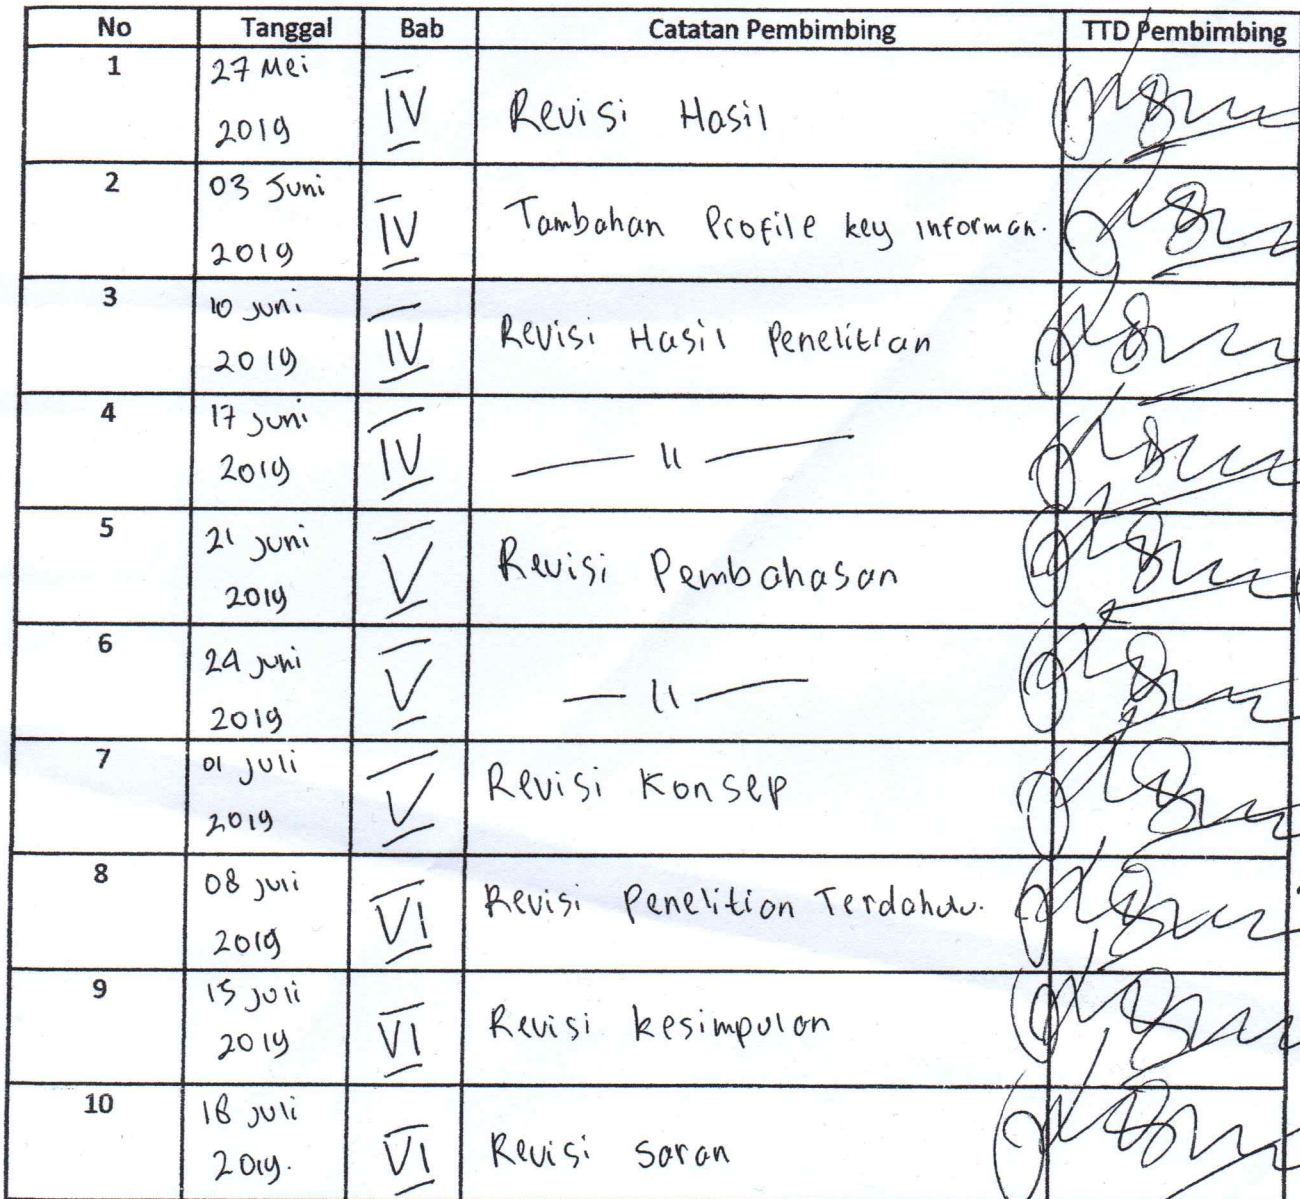 No Tanggal Bab Catatan Pembimbing TTD Pembimbing
1 27 Mei 2019 IV Revisi Hasil
2 03 Juni 2019 IV Tambahan Profile key informan.
3 10 Juni 2019 IV Revisi Hasil Penelitian
4 17 Juni 2019 IV — 11 —
5 21 Juni 2019 V Revisi Pembahasan
6 24 Juni 2019 V — 11 —
7 01 Juli 2019 V Revisi Konsep
8 08 Juli 2019 VI Revisi Penelitian Terdahulu.
9 15 Juli 2019 VI Revisi kesimpulan
10 18 Juli 2019. VI Revisi saran